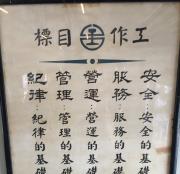 工作目標
安全：安全的基礎
服務：服務的基礎
營運：營運的基礎
管理：管理的基礎
紀律：紀律的基礎